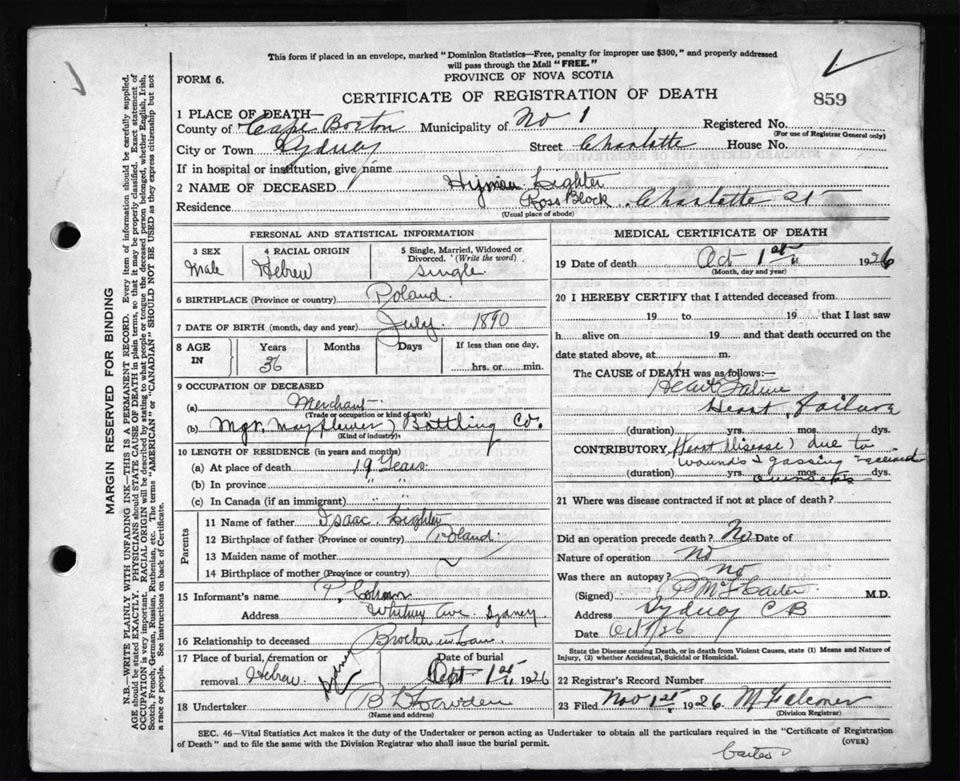 This form if placed in an envelope, marked "Dominion Statistics—Free, penalty for improper use $300," and properly addressed
will pass through the Mail "FREE."
FORM 6.
PROVINCE OF NOVA SCOTIA
CERTIFICATE OF REGISTRATION OF DEATH
859
1 PLACE OF DEATH—
County of Cape Breton Municipality of No 1 Registered No.
(For use of Registrar General only)
City or Town Sydney Street Charlotte House No.
If in hospital or institution, give name
2 NAME OF DECEASED Hyman Lighter
Residence Ross Block Charlotte St
(Usual place of abode)
PERSONAL AND STATISTICAL INFORMATION
3 SEX
Male
4 RACIAL ORIGIN
Hebrew
5 Single, Married, Widowed or
Divorced. (Write the word)
single
6 BIRTHPLACE (Province or country) Poland
7 DATE OF BIRTH (month, day and year) July 1890
8 AGE IN Years Months Days If less than one day,
36 hrs. or min.
9 OCCUPATION OF DECEASED
(a) Merchant
(Trade or occupation or kind of work)
(b) Mgr. Mayflower Bottling Co.
(Kind of industry)
10 LENGTH OF RESIDENCE (in years and months)
(a) At place of death 19 Years
(b) In province " "
(c) In Canada (if an immigrant) " "
Parents
11 Name of father Isaac Lighter
12 Birthplace of father (Province or country) Poland
13 Maiden name of mother
14 Birthplace of mother (Province or country)
15 Informant's name
Address Whitney Ave. Sydney
16 Relationship to deceased Brother in Law
17 Place of burial, cremation or
removal Hebrew
Date of burial
1st 1926
18 Undertaker
(Name and address)
MEDICAL CERTIFICATE OF DEATH
19 Date of death Oct 1st 1926
(Month, day and year)
20 I HEREBY CERTIFY that I attended deceased from
19 to 19 that I last saw
h alive on 19 and that death occurred on the
date stated above, at m.
The CAUSE of DEATH was as follows:—
Heart Failure
Heart failure
(duration) yrs. mos. dys.
CONTRIBUTORY (Heart Disease) due to
wounds & gassing received
overseas
(duration) yrs. mos. dys.
21 Where was disease contracted if not at place of death?
Did an operation precede death? No Date of
Nature of operation no
Was there an autopsy? no
(Signed) M.D.
Address Sydney C B
Date Oct 1/26
State the Disease causing Death, or in death from Violent Causes, state (1) Means and Nature of
Injury, (2) whether Accidental, Suicidal or Homicidal.
22 Registrar's Record Number
23 Filed Nov 1st 1926. M Falconer
(Division Registrar)
SEC. 46—Vital Statistics Act makes it the duty of the Undertaker or person acting as Undertaker to obtain all the particulars required in the "Certificate of Registration
of Death" and to file the same with the Division Registrar who shall issue the burial permit.
(OVER)
MARGIN RESERVED FOR BINDING
N.B.—WRITE PLAINLY WITH UNFADING INK—THIS IS A PERMANENT RECORD. Every item of information should be carefully supplied.
AGE should be stated EXACTLY. PHYSICIANS should STATE CAUSE OF DEATH in plain terms, so that it may be properly classified. Exact statement of
OCCUPATION is very important. RACIAL ORIGIN will be described by stating to what people or tongue the deceased person belonged, whether English, Irish,
Scotch, French, German, Russian, Ruthenian, etc. The terms "AMERICAN" or "CANADIAN" SHOULD NOT BE USED as they express citizenship but not
a race or people. See instructions on back of Certificate.